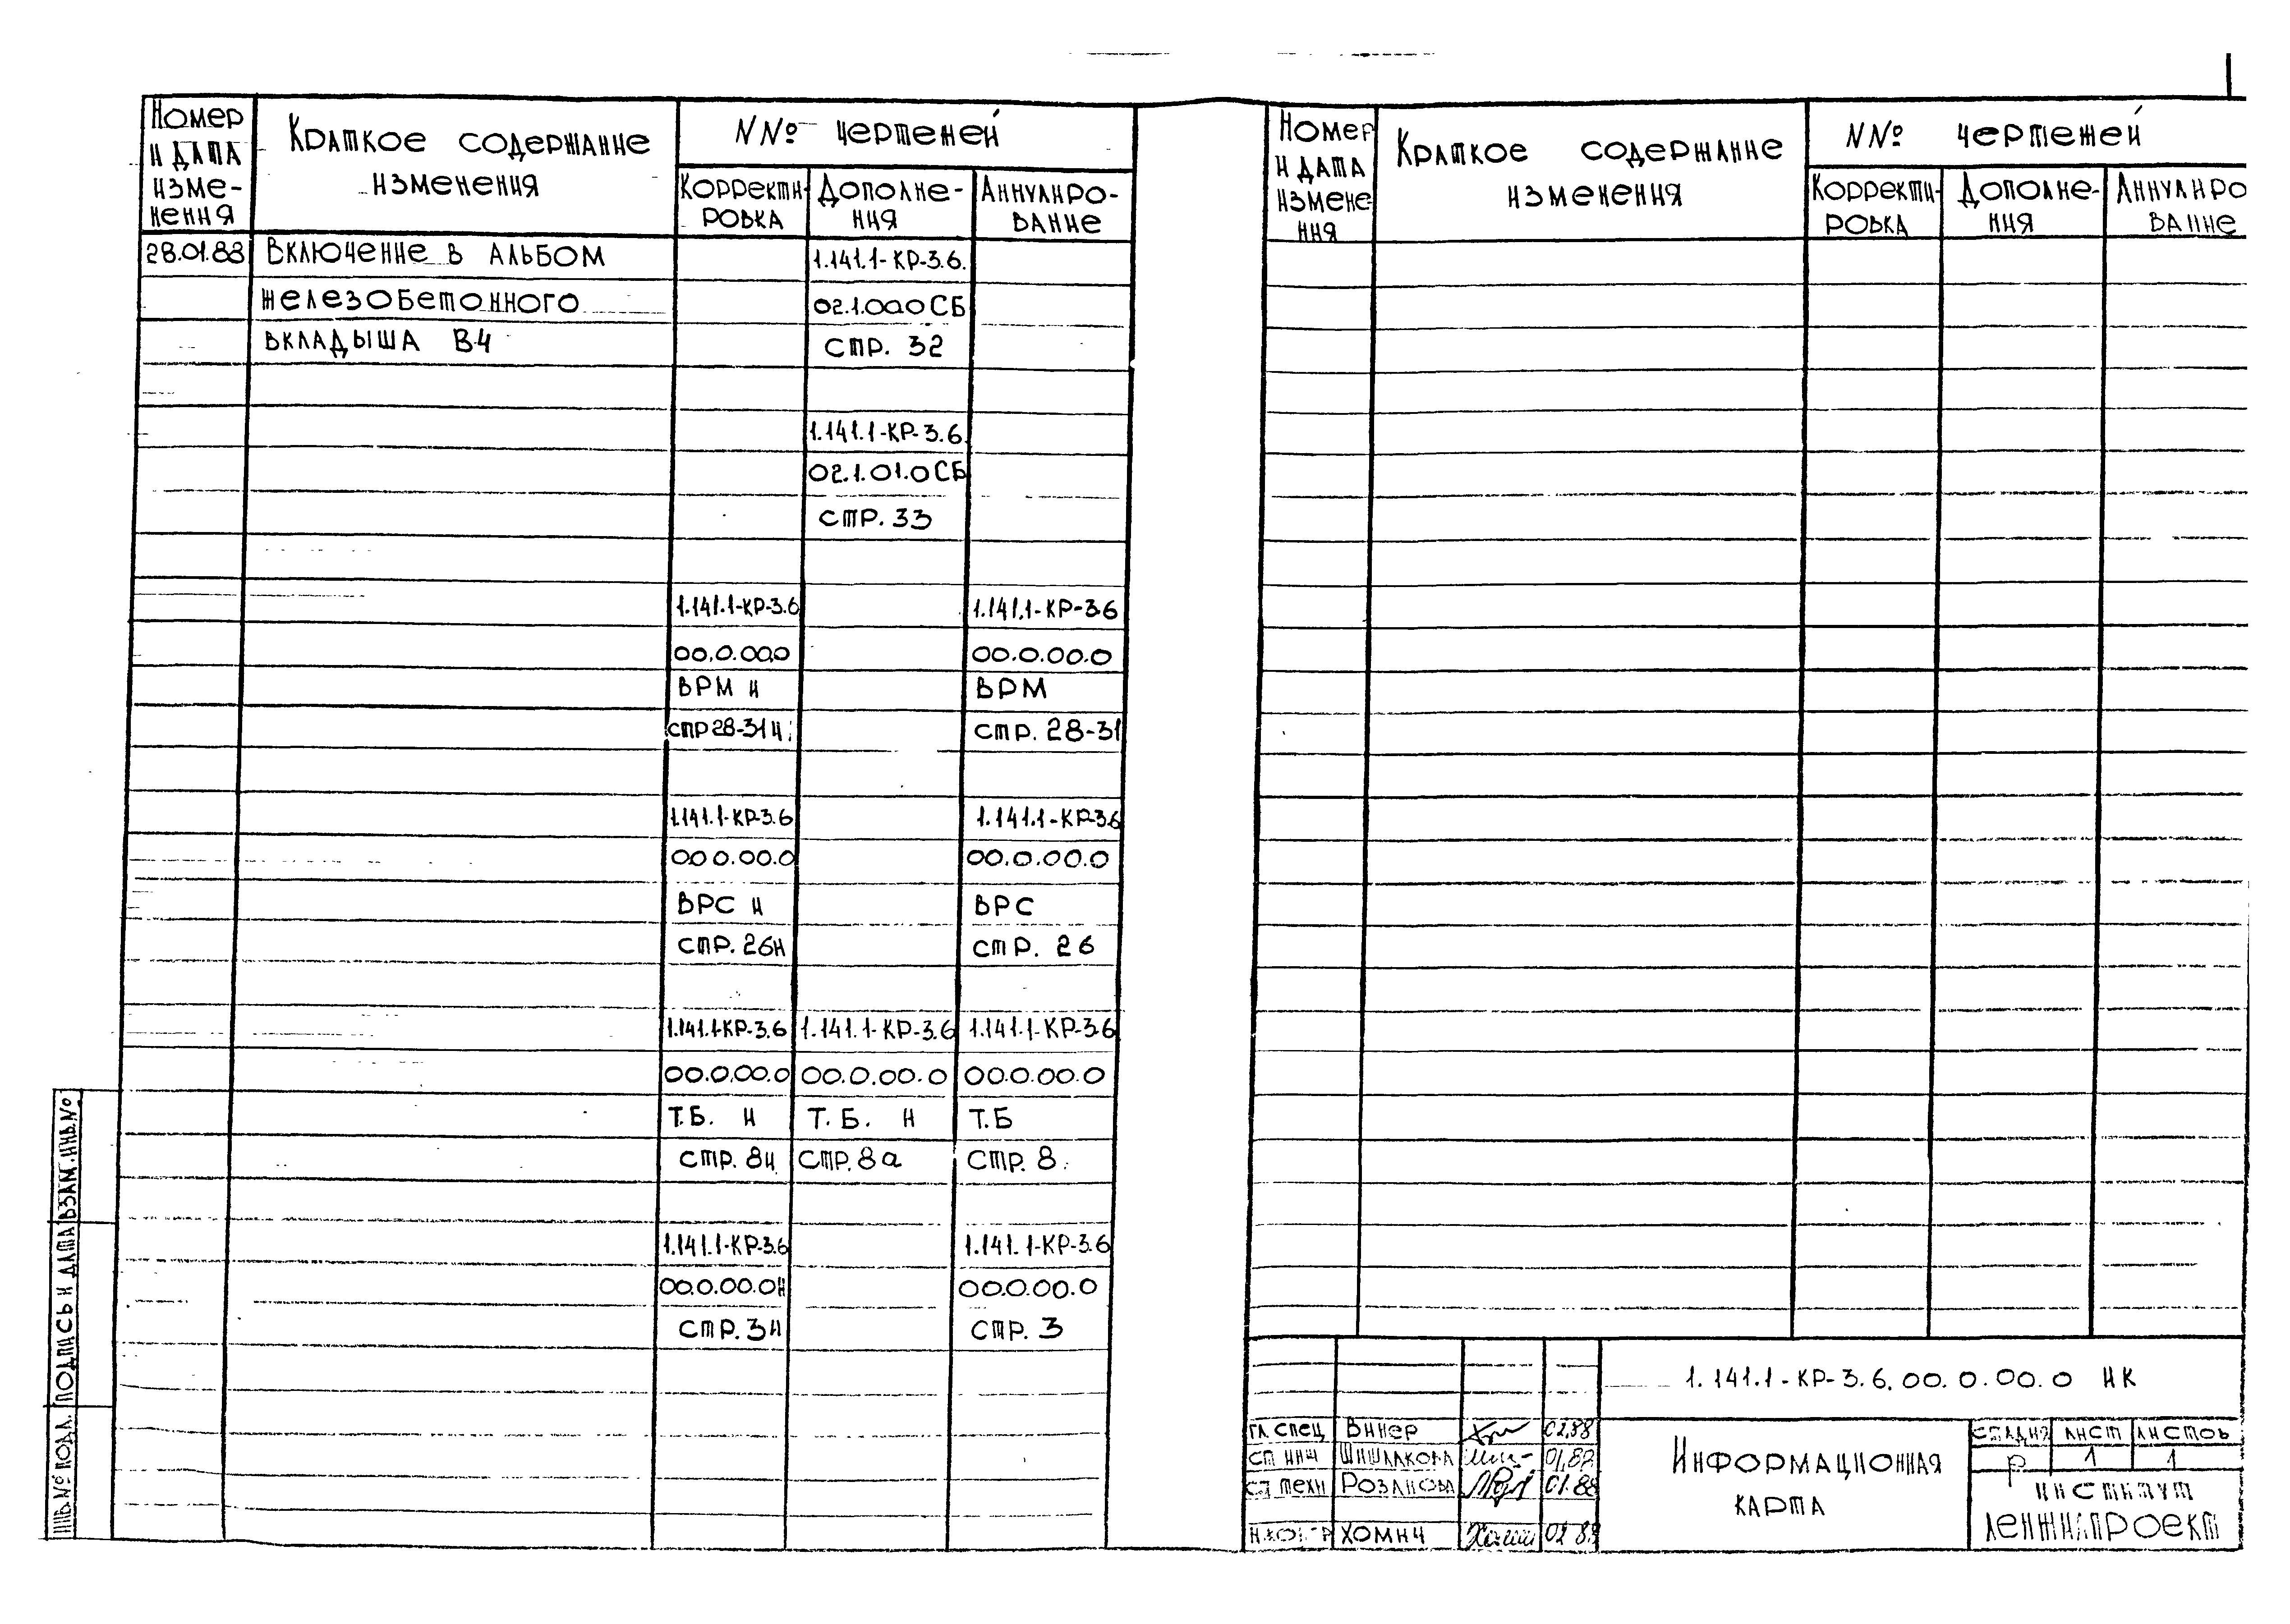 Номер и дата изме-
нения
Краткое содержание
изменения
NNº чертежей
Корректи-
ровка
Дополне-
ния
Аннулиро-
вание
28.01.88 Включение в альбом 1.141.1-КР-3.6.
железобетонного 02.1.00.0 СБ
вкладыша В4 стр. 32
1.141.1-КР-3.6.
02.1.01.0 СБ
стр. 33
1.141.1-КР-3.6 1.141.1-КР-3.6
00.0.00.0 00.0.00.0
ВРМ и ВРМ
стр 28-31и стр. 28-31
1.141.1-КР-3.6 1.141.1-КР-3.6
00.0.00.0 00.0.00.0
ВРС и ВРС
стр. 26и стр. 26
1.141.1-КР-3.6 1.141.1-КР-3.6 1.141.1-КР-3.6
00.0.00.0 00.0.00.0 00.0.00.0
Т.Б. и Т.Б. и Т.Б
стр. 8и стр. 8а стр. 8
1.141.1-КР-3.6 1.141.1-КР-3.6
00.0.00.0и 00.0.00.0
стр. 3и стр. 3
Номер
и дата
измене
ния
Краткое содержание
изменения
NNº чертежей
Корректи-
ровка
Дополне-
ния
Аннулиро
вание
1.141.1-КР-3.6.00.0.00.0 ИК
гл. спец Винер 02.88
ст инж Шишлакова 01.88
ст техн Розанова 01.88
н.контр Хомич 02.88
Информационная
карта
стадия лист листов
Р 1 1
институт
Ленжилпроект
инв.№ подл. подпись и дата взам.инв.№